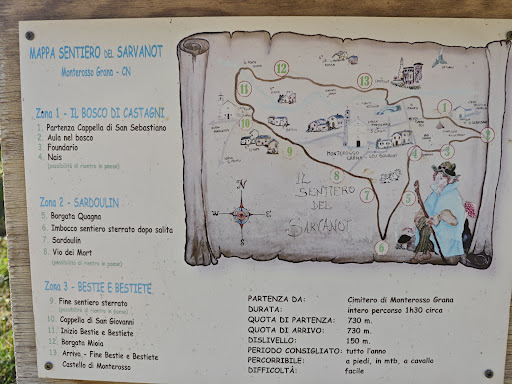 MAPPA SENTIERO DEL SARVANOT
Monterosso Grana - CN
Zona 1 - IL BOSCO DI CASTAGNI
1. Partenza Cappella di San Sebastiano
2. Aula nel bosco
3. Foundario
4. Nais
(possibilità di rientro in paese)
Zona 2 - SARDOULIN
5. Borgata Quagna
6. Imbocco sentiero sterrato dopo salita
7. Sardoulin
8. Vio dei Mort
(possibilità di rientro in paese)
Zona 3 - BESTIE E BESTIETE
9. Fine sentiero sterrato
(possibilità di rientro in paese)
10. Cappella di San Giovanni
11. Inizio Bestie e Bestiete
12. Borgata Mioia
13. Arrivo - Fine Bestie e Bestiete
Castello di Monterosso
12
13
11
10
9
8
7
6
5
4
3
2
1
MONTEROSSO
GRANA
IL
SENTIERO
DEL
SARVANOT
PARTENZA DA: Cimitero di Monterosso Grana
DURATA: intero percorso 1h30 circa
QUOTA DI PARTENZA: 730 m.
QUOTA DI ARRIVO: 730 m.
DISLIVELLO: 150 m.
PERIODO CONSIGLIATO: tutto l'anno
PERCORRIBILE: a piedi, in mtb, a cavallo
DIFFICOLTÀ: facile